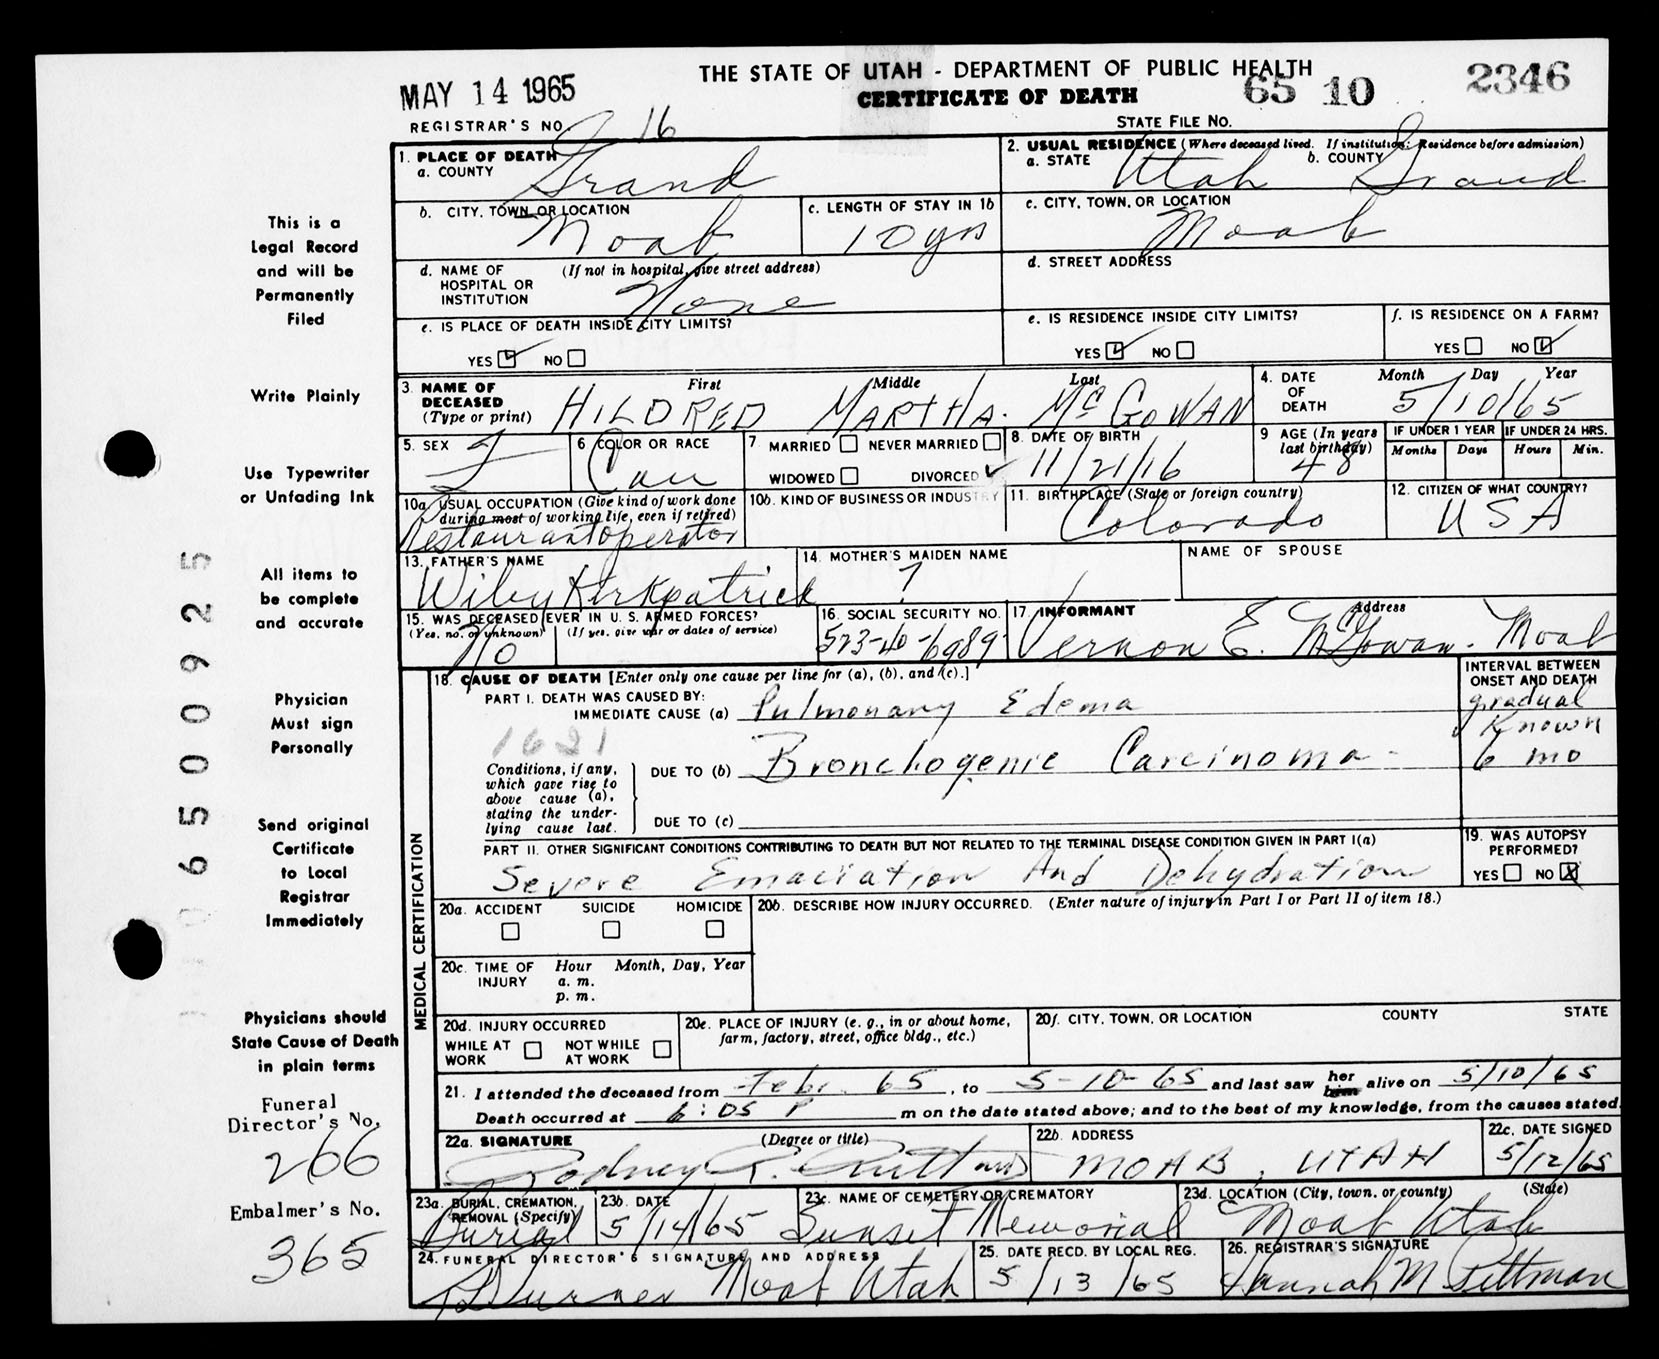 MAY 14 1965
THE STATE OF UTAH - DEPARTMENT OF PUBLIC HEALTH
CERTIFICATE OF DEATH
65 10 2346
REGISTRAR'S NO. 16
STATE FILE No.
1. PLACE OF DEATH
a. COUNTY Grand
2. USUAL RESIDENCE (Where deceased lived. If institution: Residence before admission)
a. STATE Utah b. COUNTY Grand
b. CITY, TOWN, OR LOCATION Moab
c. LENGTH OF STAY IN 1b 10 yrs
c. CITY, TOWN, OR LOCATION Moab
d. NAME OF HOSPITAL OR INSTITUTION (If not in hospital, give street address) None
d. STREET ADDRESS
e. IS PLACE OF DEATH INSIDE CITY LIMITS?
YES NO
e. IS RESIDENCE INSIDE CITY LIMITS?
YES NO
f. IS RESIDENCE ON A FARM?
YES NO
3. NAME OF DECEASED (Type or print)
First Middle Last
HILDRED MARTHA. McGOWAN
4. DATE OF DEATH
Month Day Year
5/10/65
5. SEX F
6 COLOR OR RACE Cau
7 MARRIED NEVER MARRIED
WIDOWED DIVORCED
8. DATE OF BIRTH 11/21/16
9 AGE (In years last birthday) 48
IF UNDER 1 YEAR Months Days
IF UNDER 24 HRS. Hours Min.
10a. USUAL OCCUPATION (Give kind of work done during most of working life, even if retired)
Restaurant operator
10b. KIND OF BUSINESS OR INDUSTRY
11. BIRTHPLACE (State or foreign country) Colorado
12. CITIZEN OF WHAT COUNTRY? USA
13. FATHER'S NAME Wiley Kirkpatrick
14. MOTHER'S MAIDEN NAME ?
NAME OF SPOUSE
15. WAS DECEASED EVER IN U. S. ARMED FORCES?
(Yes, no, or unknown) (If yes, give war or dates of service)
No
16. SOCIAL SECURITY NO. 523-40-6989
17. INFORMANT Address
Vernon E. McGowan. Moab
18. CAUSE OF DEATH [Enter only one cause per line for (a), (b), and (c).]
INTERVAL BETWEEN ONSET AND DEATH
PART I. DEATH WAS CAUSED BY:
IMMEDIATE CAUSE (a) Pulmonary Edema gradual
1621
Conditions, if any, which gave rise to above cause (a), stating the underlying cause last.
DUE TO (b) Bronchogenic Carcinoma - Known 6 mo
DUE TO (c)
PART II. OTHER SIGNIFICANT CONDITIONS CONTRIBUTING TO DEATH BUT NOT RELATED TO THE TERMINAL DISEASE CONDITION GIVEN IN PART I(a)
Severe Emaciation And Dehydration
19. WAS AUTOPSY PERFORMED?
YES NO X
MEDICAL CERTIFICATION
20a. ACCIDENT SUICIDE HOMICIDE
20b. DESCRIBE HOW INJURY OCCURRED. (Enter nature of injury in Part I or Part II of item 18.)
20c. TIME OF INJURY Hour Month, Day, Year
a. m.
p. m.
20d. INJURY OCCURRED
WHILE AT WORK NOT WHILE AT WORK
20e. PLACE OF INJURY (e. g., in or about home, farm, factory, street, office bldg., etc.)
20f. CITY, TOWN, OR LOCATION COUNTY STATE
21. I attended the deceased from Febr. 65, to 5-10-65 and last saw her him alive on 5/10/65
Death occurred at 6:05 P m on the date stated above; and to the best of my knowledge, from the causes stated.
22a. SIGNATURE (Degree or title)
Rodney
22b. ADDRESS MOAB, UTAH
22c. DATE SIGNED 5/12/65
23a. BURIAL, CREMATION, REMOVAL (Specify) Burial
23b. DATE 5/14/65
23c. NAME OF CEMETERY OR CREMATORY Sunset Memorial
23d. LOCATION (City, town, or county) (State) Moab Utah
24. FUNERAL DIRECTOR'S SIGNATURE AND ADDRESS
Moab Utah
25. DATE RECD. BY LOCAL REG. 5/13/65
26. REGISTRAR'S SIGNATURE Hannah M Pittman
This is a
Legal Record
and will be
Permanently
Filed
Write Plainly
Use Typewriter
or Unfading Ink
All items to
be complete
and accurate
Physician
Must sign
Personally
Send original
Certificate
to Local
Registrar
Immediately
Physicians should
State Cause of Death
in plain terms
Funeral
Director's No.
266
Embalmer's No.
365
0 6 5 0 0 9 2 5